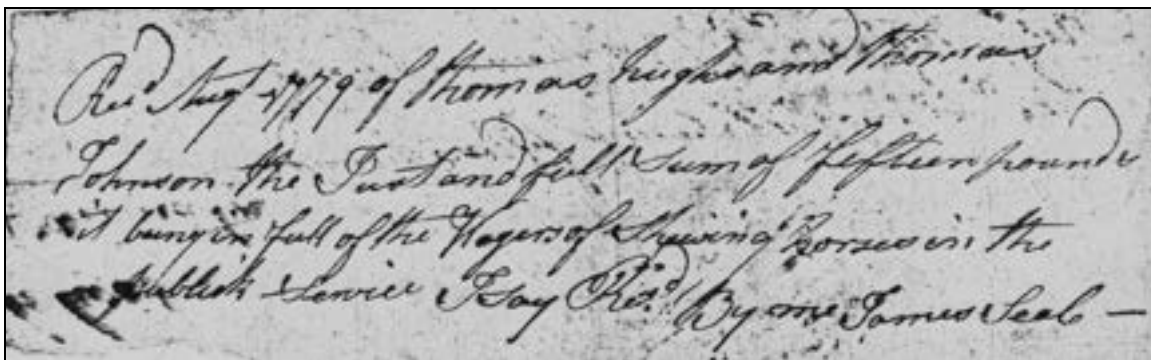 Recd Augt 1779 of thomas hughs and Thomas
Johnson the Just and full Sum of fifteen pounds
it being in full of the Wagers of Shewing horses in the
publick Service I say Recd
By me James Seal —